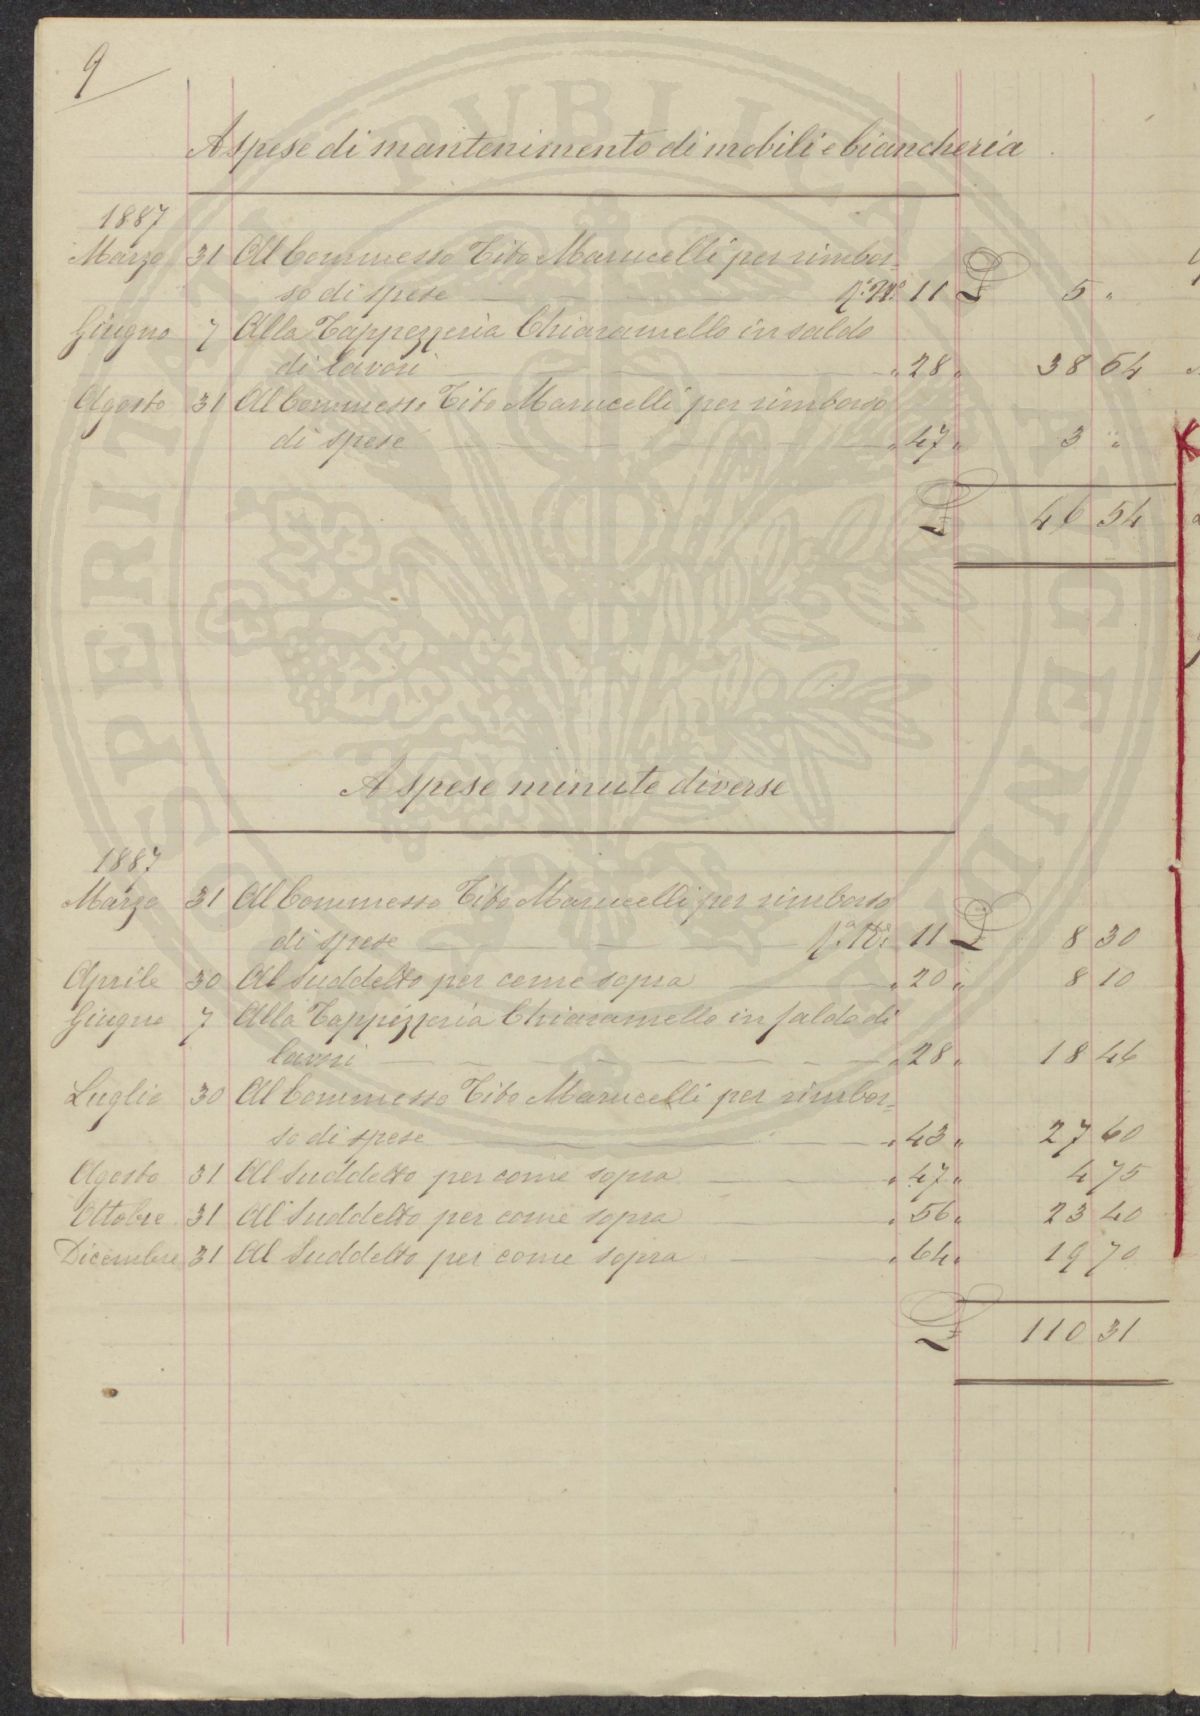 9
A spese di mantenimento di mobili e biancheria
1887
Marzo 31 Al Commesso Tito Marucelli per rimbor=
so di spese 11 £ 5 "
Giugno 7 Alla Tappezzeria Chiaramello in saldo
di lavori " 28 " 38 54
Agosto 31 Al Commesso Tito Marucelli per rimborso
di spese " 47 " 3 "
£ 46 54
A spese minute diverse
1887
Marzo 31 Al Commesso Tito Marucelli per rimborso
di spese 11 £ 8 30
Aprile 30 Al Suddetto per come sopra " 20 " 8 10
Giugno 7 Alla Tappezzeria Chiaramello in saldo di
lavori " 28 " 18 46
Luglio 30 Al Commesso Tito Marucelli per rimbor=
so di spese " 43 " 27 60
Agosto 31 Al Suddetto per come sopra " 47 " 4 75
Ottobre 31 Al Suddetto per come sopra " 56 " 23 40
Dicembre 31 Al Suddetto per come sopra " 64 " 19 70
£ 110 31